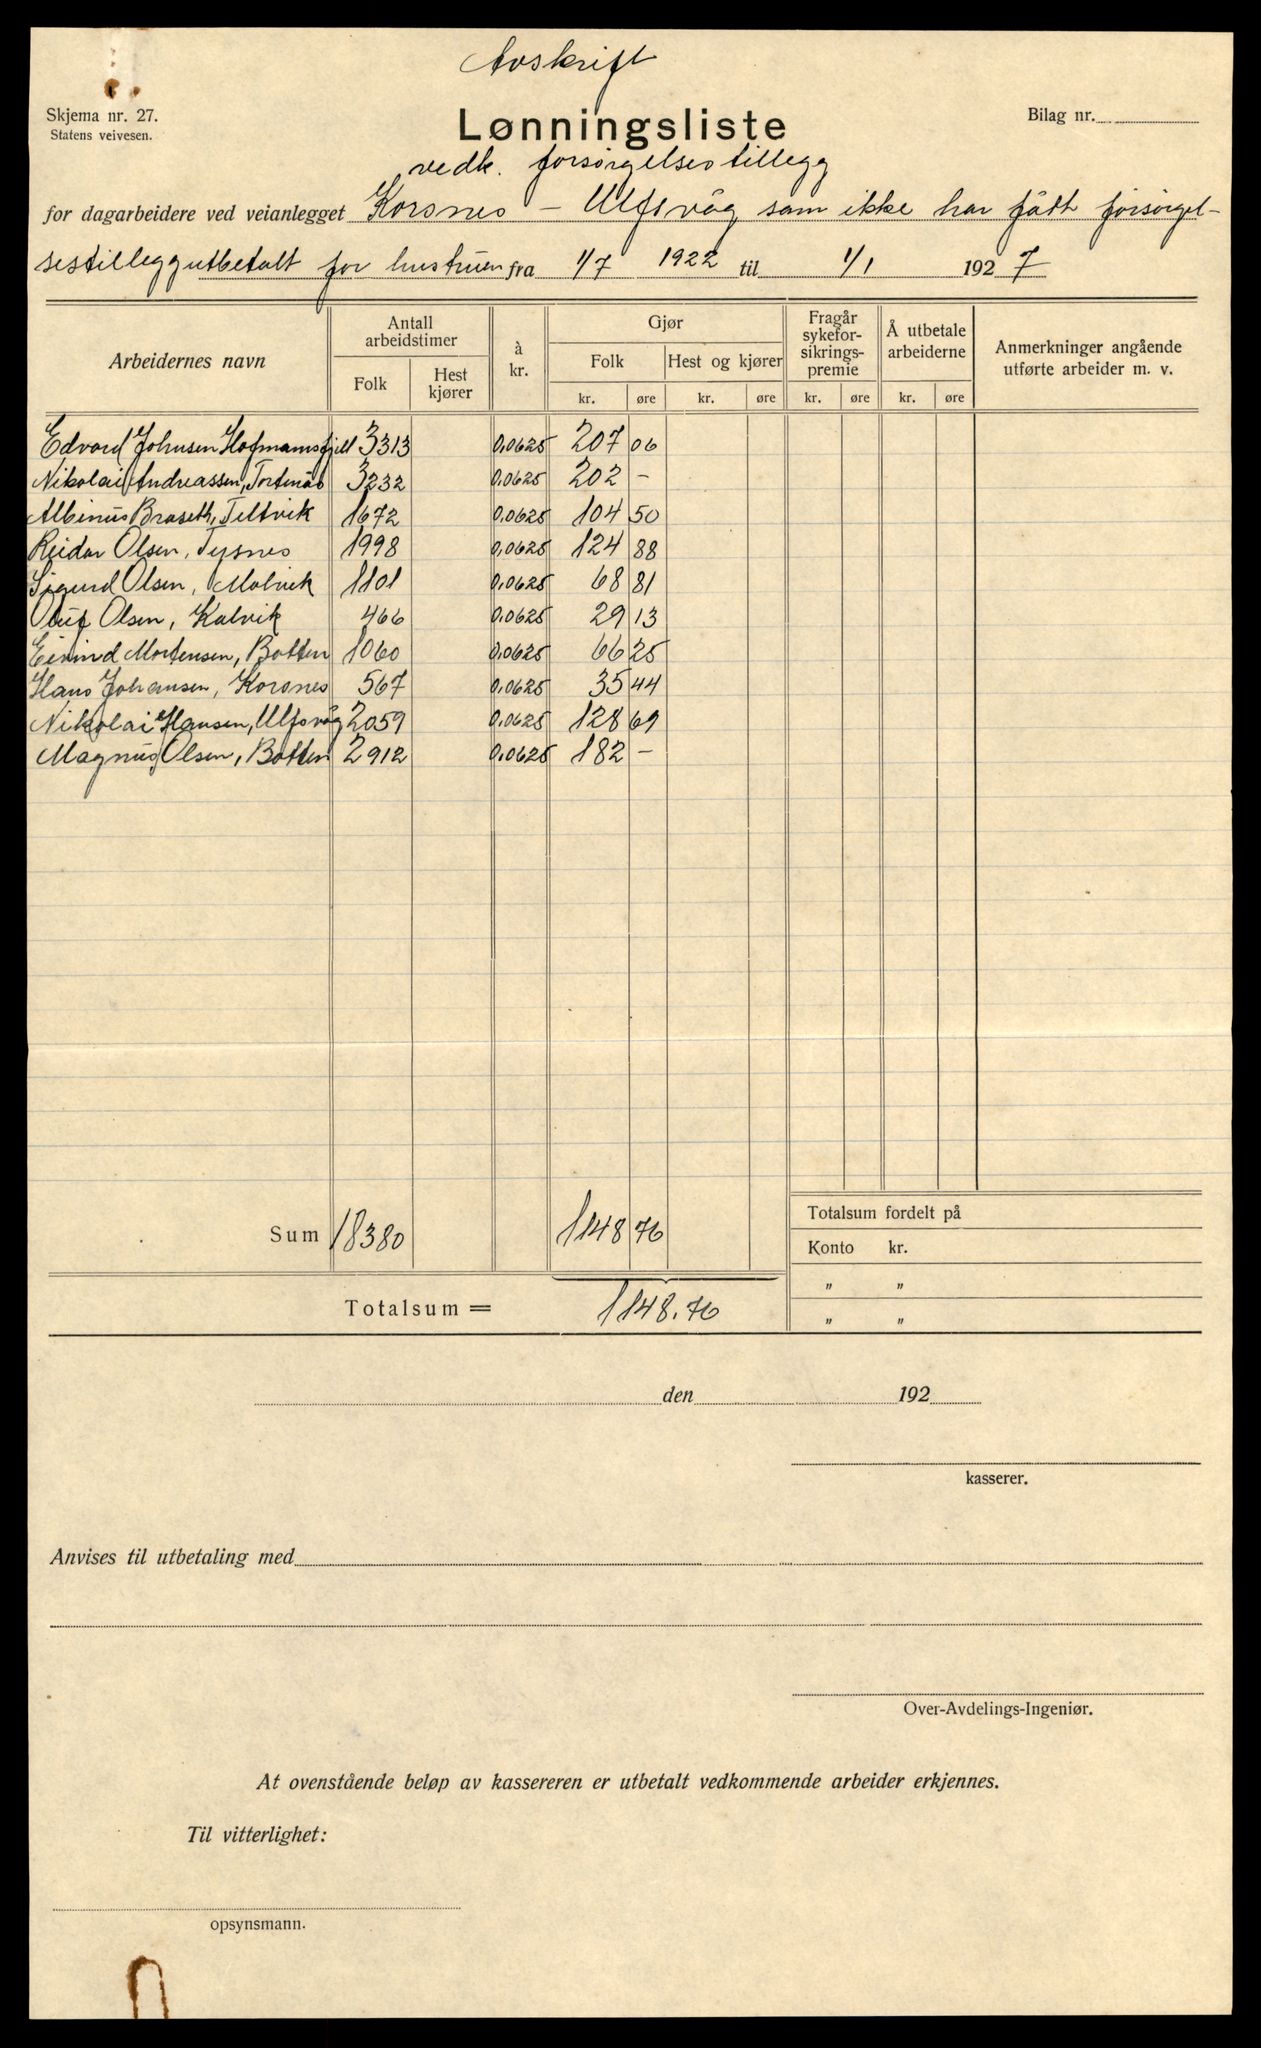 Avskrift
Skjema nr. 27.
Statens veivesen.
Lønningsliste
Bilag nr.
vedk. forsørgelsestillegg
for dagarbeidere ved veianlegget Korsnes - Ulfsvåg som ikke har fått forsørgel-
sestillegg utbetalt for hustruen fra 1/7 1922 til 1/1 1927
Arbeidernes navn
Antall arbeidstimer
Folk
Hest kjører
à kr.
Gjør
Folk
Hest og kjører
kr. øre kr. øre
Fragår sykeforsikringspremie
kr. øre
Å utbetale arbeiderne
kr. øre
Anmerkninger angående utførte arbeider m. v.
Edvard Johnsen Hofmannsfjell 3313 0,0625 207 06
Nikolai Andreassen, Tortenås 3232 0,0625 202 -
Albinus Braseth, Teltvik 1672 0,0625 104 50
Reidar Olsen, Tysnes 1998 0,0625 124 88
Sigurd Olsen, Molvik 1101 0,0625 68 81
Oluf Olsen, Kalvik 466 0,0625 29 13
Eivind Mortensen, Botten 1060 0,0625 66 25
Hans Johansen, Korsnes 567 0,0625 35 44
Nikolai Hansen, Ulfsvåg 2059 0,0625 128 69
Magnus Olsen, Botten 2912 0,0625 182 -
Sum 18380 1148 76
Totalsum = 1148.76
Totalsum fordelt på
Konto kr.
„ „
„ „
den 192
kasserer.
Anvises til utbetaling med
Over-Avdelings-Ingeniør.
At ovenstående beløp av kassereren er utbetalt vedkommende arbeider erkjennes.
Til vitterlighet:
opsynsmann.